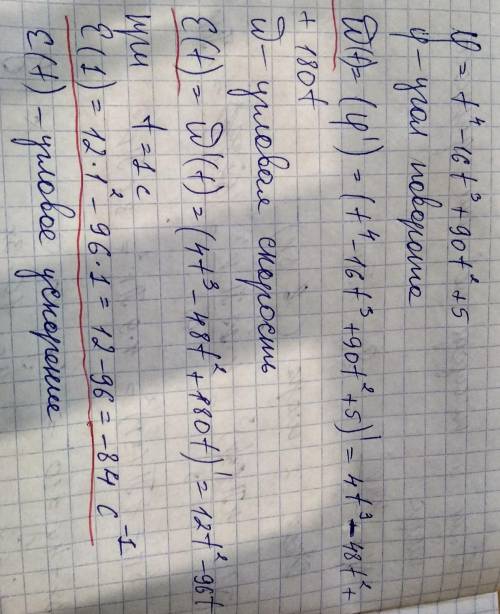 φ = t⁴ - 16t³ + 90t² + 5
φ - угол поворота
ω(t) = (φ') = (t⁴ - 16t³ + 90t² + 5)' = 4t³ - 48t² +
+ 180t
ω - угловая скорость
ε(t) = ω'(t) = (4t³ - 48t² + 180t)' = 12t² - 96t
при t = 1 c
ε(1) = 12·1² - 96·1 = 12 - 96 = -84 c⁻¹
ε(t) - угловое ускорение